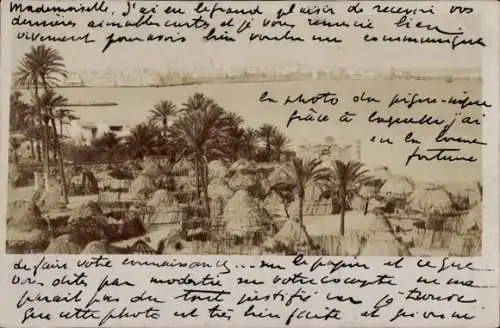 Mademoiselle, j'ai eu le grand plaisir de recevoir vos
dernières aimables cartes et je vous remercie bien
vivement pour avoir bien voulu me communiquer
la photo du pique-nique
grâce à laquelle j'ai
eu la bonne
fortune
de faire votre connaissance... sur le papier et ce que
vous dites par modestie sur votre compte ne me
parait pas du tout justifié car je trouve
que cette photo est très bien faite et